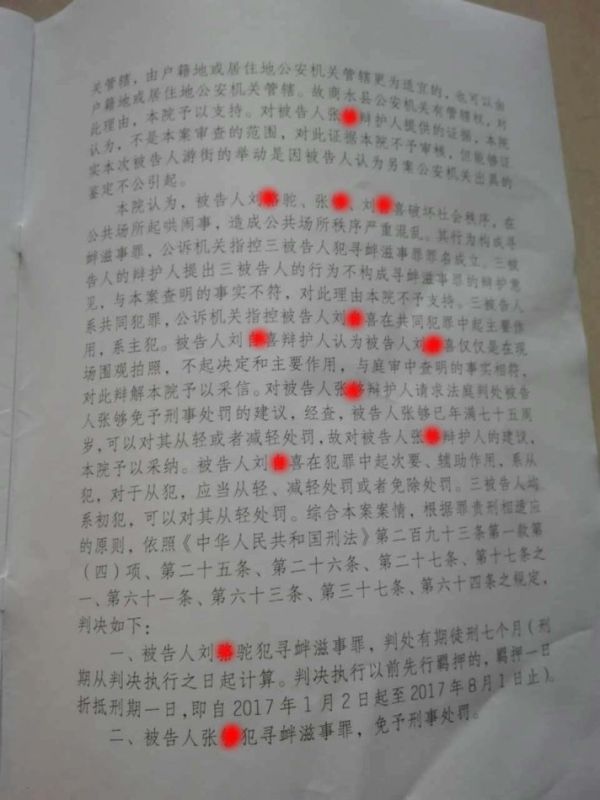 关管辖，由户籍地或居住地公安机关管辖更为适宜的，也可以由
户籍地或居住地公安机关管辖。故商水县公安机关有管辖权，对
此理由，本院予以支持。对被告人张辩护人提供的证据，本院
认为，不是本案审查的范围，对此证据本院不予审核，但能够证
实本次被告人游街的举动是因被告人认为另案公安机关出具的
鉴定不公引起。
本院认为，被告人刘驼、张、刘喜破坏社会秩序，在
公共场所起哄闹事，造成公共场所秩序严重混乱。其行为构成寻
衅滋事罪，公诉机关指控三被告人犯寻衅滋事罪罪名成立。三被
告人的辩护人提出三被告人的行为不构成寻衅滋事罪的辩护意
见，与本案查明的事实不符，对此理由本院不予支持。三被告人
系共同犯罪，公诉机关指控被告人刘喜在共同犯罪中起主要作
用，系主犯。被告人刘喜辩护人认为被告人刘喜仅仅是在现
场围观拍照，不起决定和主要作用，与庭审中查明的事实相符，
对此辩解本院予以采信。对被告人张辩护人请求法庭判处被告
人张够免予刑事处罚的建议，经查，被告人张够已年满七十五周
岁，可以对其从轻或者减轻处罚，故对被告人张辩护人的建议，
本院予以采纳。被告人刘喜在犯罪中起次要、辅助作用，系从
犯，对于从犯，应当从轻、减轻处罚或者免除处罚。三被告人均
系初犯，可以对其从轻处罚。综合本案案情，根据罪责刑相适应
的原则，依照《中华人民共和国刑法》第二百九十三条第一款第
（四）项、第二十五条、第二十六条、第二十七条、第十七条之
一、第六十一条、第六十三条、第三十七条、第六十四条之规定，
判决如下：
一、被告人刘驼犯寻衅滋事罪，判处有期徒刑七个月（刑
期从判决执行之日起计算。判决执行以前先行羁押的，羁押一日
折抵刑期一日，即自2017年1月2日起至2017年8月1日止）。
二、被告人张犯寻衅滋事罪，免予刑事处罚。